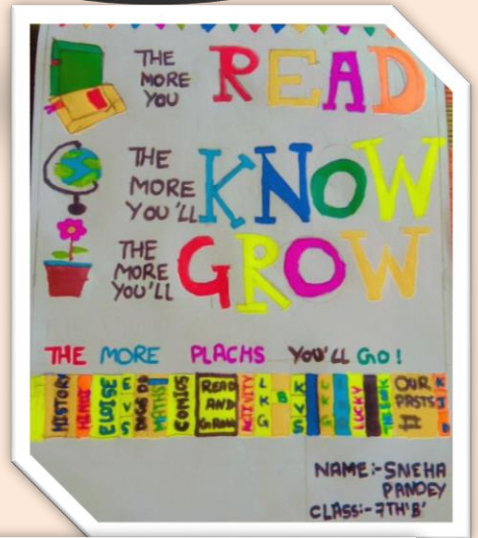 THE
MORE
YOU
READ
THE
MORE
YOU'LL
KNOW
THE
MORE
YOU'LL
GROW
THE MORE PLACHS YOU'LL GO!
HISTORY
HINDI
ELOISE
EVS
MATHS
COMICS
READ
AND
GROW
ACTIVITY
LKG
B
KVS
LUCKY
OUR
PASTS
#
NAME:-SNEHA
PANDEY
CLASS:-7TH'B'